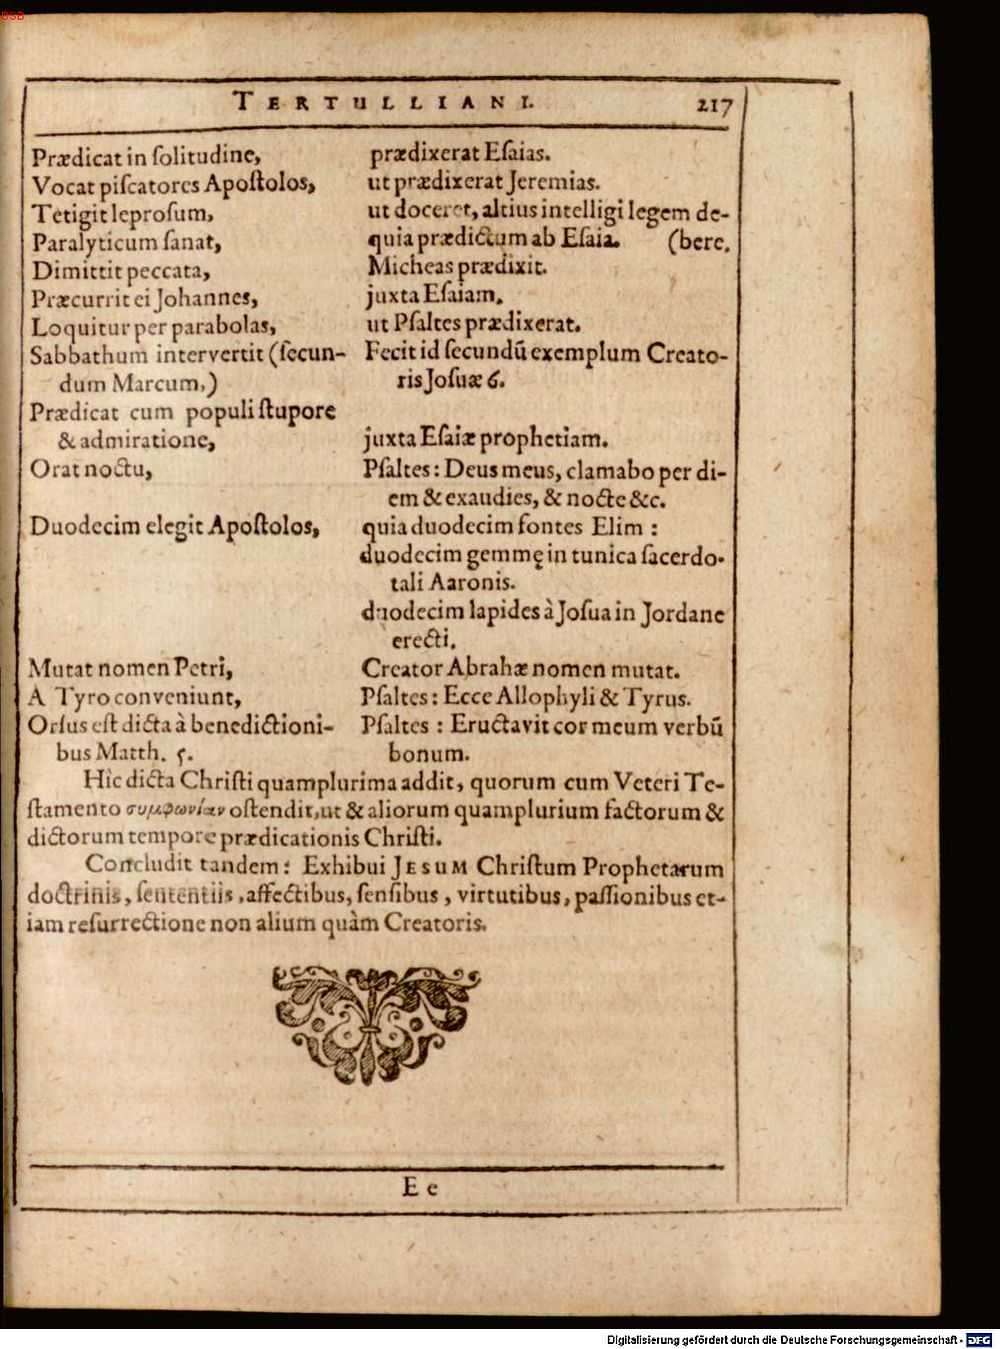 BSB
TERTULLIANI. 217
Prædicat in ſolitudine, prædixerat Eſaias.
Vocat piſcatores Apoſtolos, ut prædixerat Jeremias.
Tetigit leproſum, ut doceret, altius intelligi legem de-
Paralyticum ſanat, quia prædictum ab Eſaia. (bere.
Dimittit peccata, Micheas prædixit.
Præcurrit ei Johannes, juxta Eſaiam.
Loquitur per parabolas, ut Pſaltes prædixerat.
Sabbathum intervertit (ſecun- Fecit id ſecundū exemplum Creato-
dum Marcum,) ris Joſuæ 6.
Prædicat cum populi ſtupore
& admiratione, juxta Eſaiæ prophetiam.
Orat noctu, Pſaltes: Deus meus, clamabo per di-
em & exaudies, & nocte &c.
Duodecim elegit Apoſtolos, quia duodecim fontes Elim :
duodecim gemmę in tunica ſacerdo-
tali Aaronis.
duodecim lapides à Joſua in Jordane
erecti.
Mutat nomen Petri, Creator Abrahæ nomen mutat.
A Tyro conveniunt, Pſaltes: Ecce Allophyli & Tyrus.
Orſus eſt dicta à benedictioni- Pſaltes : Eructavit cor meum verbū
bus Matth. 5. bonum.
Hic dicta Chriſti quamplurima addit, quorum cum Veteri Te-
ſtamento συμφωνίαν oſtendit, ut & aliorum quamplurium factorum &
dictorum tempore prædicationis Chriſti.
Concludit tandem: Exhibui JESUM Chriſtum Prophetarum
doctrinis, ſententiis, affectibus, ſenſibus, virtutibus, paſſionibus et-
iam reſurrectione non alium quàm Creatoris.
E e
Digitalisierung gefördert durch die Deutsche Forschungsgemeinschaft - DFG